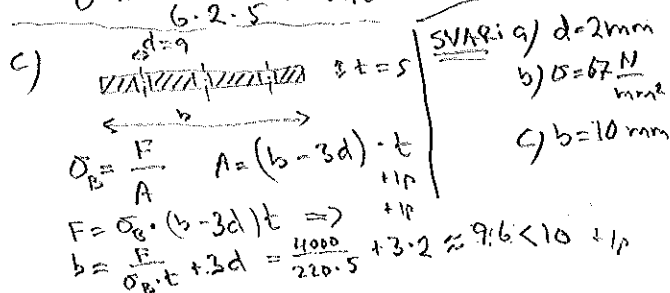 6·2·5
c) d=9 t=5
b
σ_B = F/A A=(b-3d)·t
+1p
F=σ_B·(b-3d)t => +1p
b= F/(σ_B·t) +3d = 4000/(220·5) +3·2 ≈ 9.6<10 +1p
SVAR: a) d=2mm
b) σ=67 N/mm²
c) b=10 mm